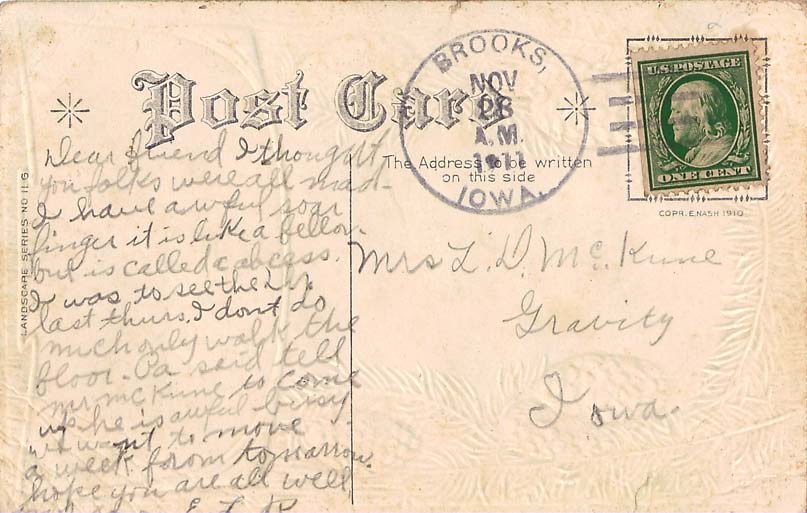 Post Card
BROOKS,
NOV
28
A.M.
1911
IOWA.
U.S. POSTAGE
ONE CENT
COPR. E. NASH 1910
The Address to be written
on this side
LANDSCAPE SERIES NO 11.G.
Dear friend I thought
you folks were all mad-
I have awful soar
finger it is like a fellon.
but is called abcess.
I was to see the Dr.
last thurs. I dont do
much only walk the
floor. Pa said tell
Mr McKune to come
up he is awful busy
we want to move
a week from tomorrow.
hope you are all well
Mrs L. D. McKune
Gravity
Iowa.